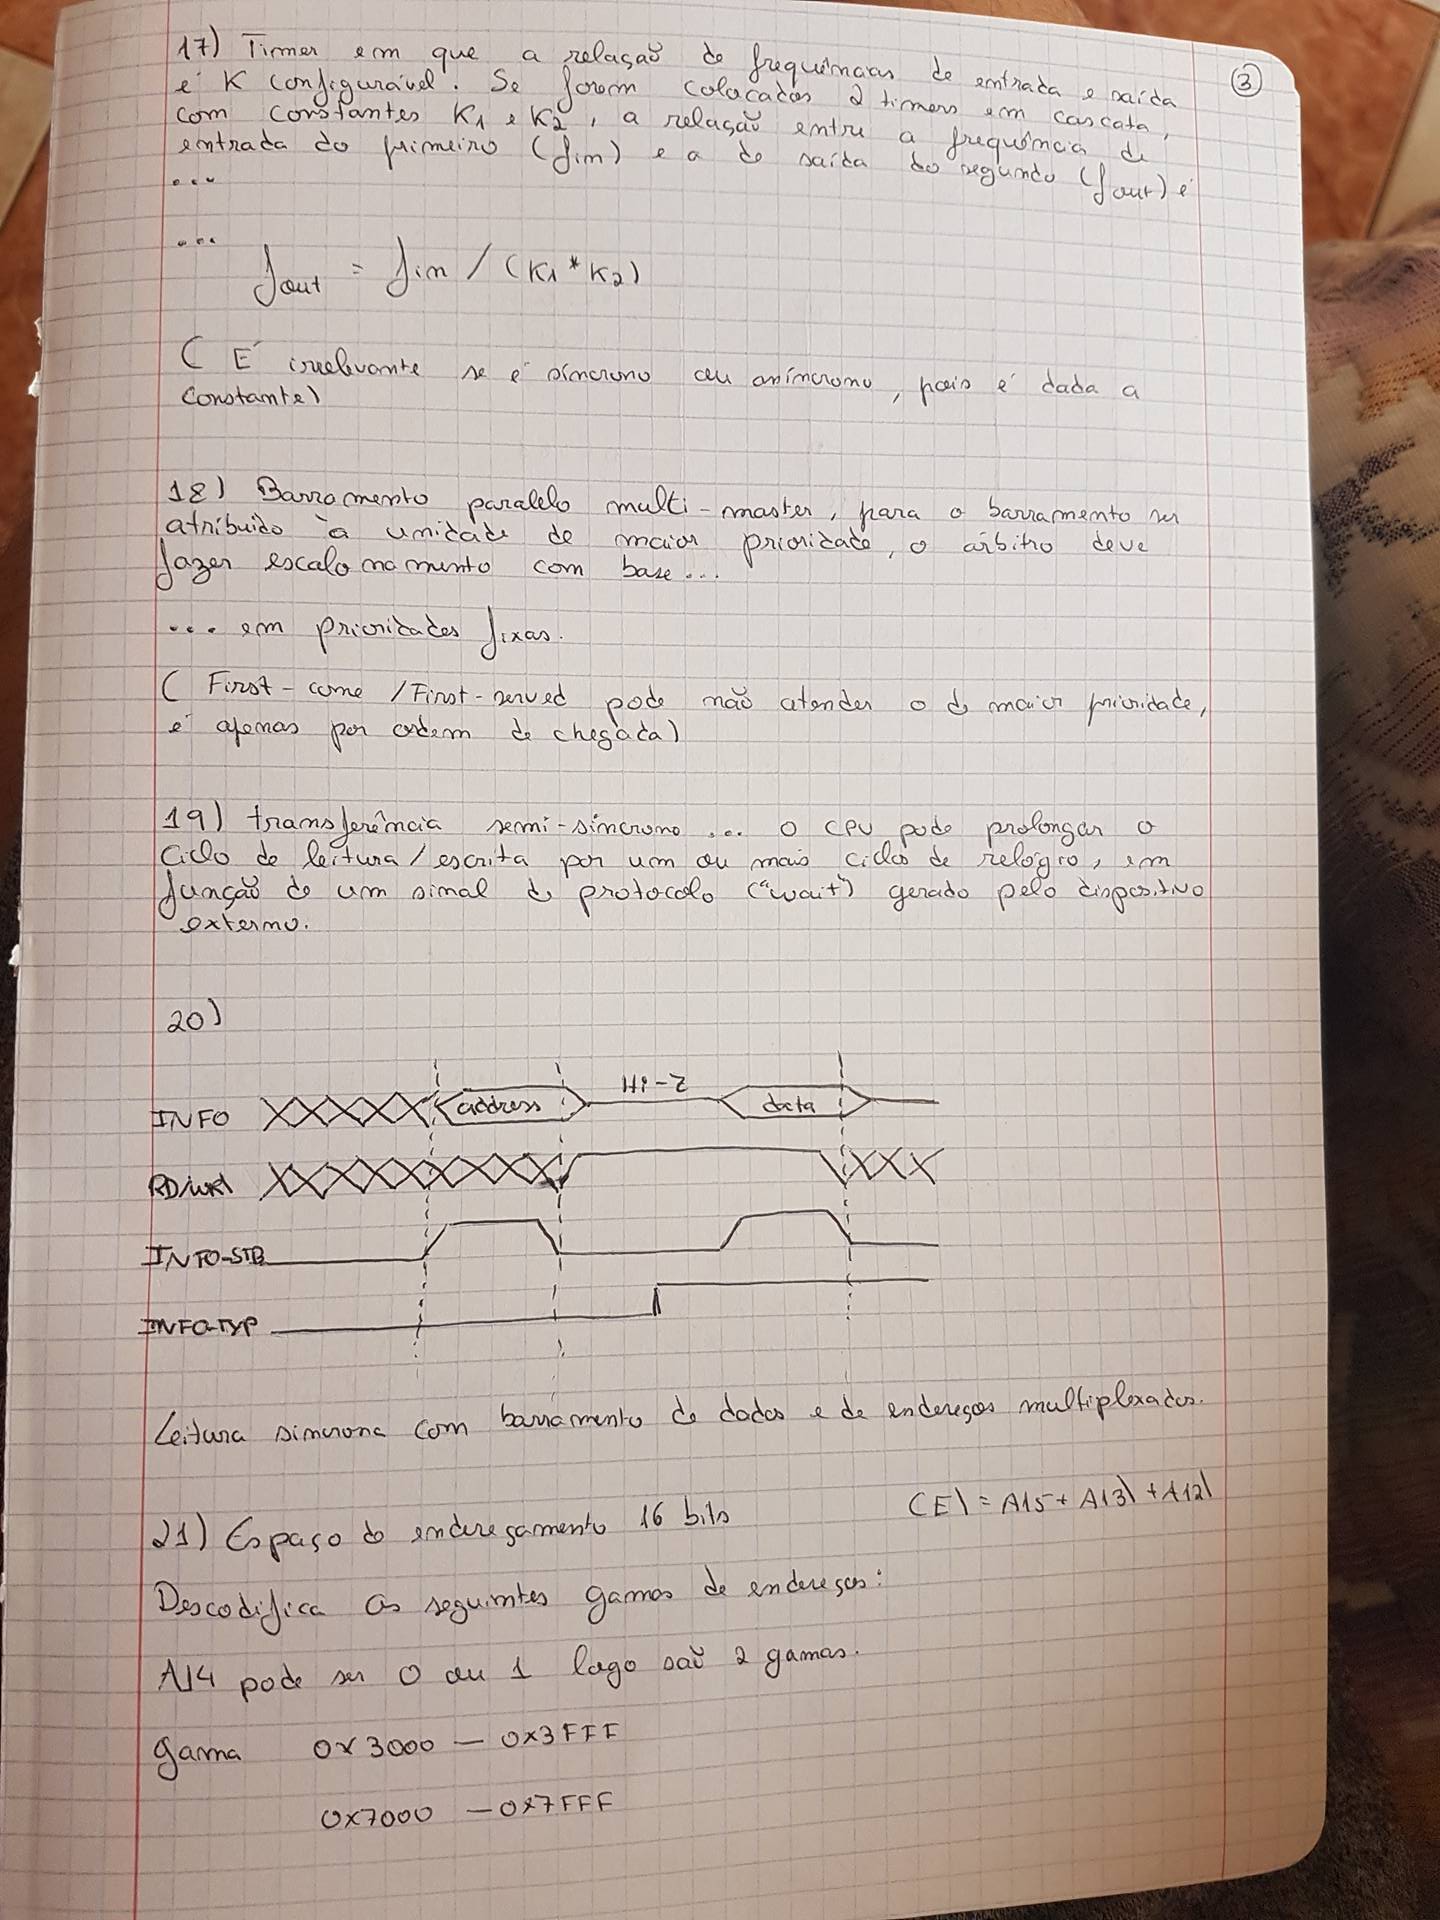 ③
17) Timer em que a relação de frequências de entrada e saída
é K configurável. Se forem colocados 2 timers em cascata,
com constantes K1 e K2, a relação entre a frequência de
entrada do primeiro (fin) e a de saída do segundo (fout) é
...
...
fout = fin / (K1 * K2)
( É irrelevante se é síncrono ou assíncrono, pois é dada a
constante)
18) Barramento paralelo multi-master, para o barramento ser
atribuído à unidade de maior prioridade, o árbitro deve
fazer escalonamento com base...
... em prioridades fixas.
( First-come / First-served pode não atender o de maior prioridade,
é apenas por ordem de chegada)
19) transferência semi-síncrona ... o CPU pode prolongar o
ciclo de leitura / escrita por um ou mais ciclos de relógio, em
função de um sinal de protocolo ("wait") gerado pelo dispositivo
externo.
20)
Hi-Z
INFO address data
RD/WR\
INFO-STB
INFO-TYP
Leitura síncrona com barramento de dados e de endereços multiplexados.
21) Espaço de endereçamento 16 bits CE\ = A15 + A13\ + A12\
Descodifica as seguintes gamas de endereços:
A14 pode ser 0 ou 1 logo são 2 gamas.
gama 0x3000 - 0x3FFF
0x7000 - 0x7FFF